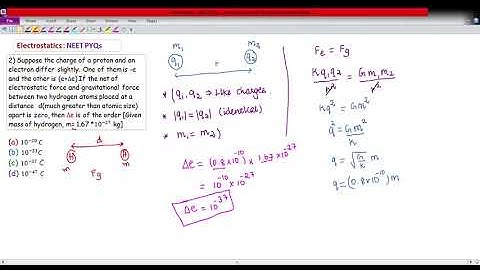 Electrostatics: NEET PYQs
2) Suppose the charge of a proton and an
electron differ slightly. One of them is -e
and the other is (e+Δe).If the net of
electrostatic force and gravitational force
between two hydrogen atoms placed at a
distance d(much greater than atomic size)
apart is zero, then Δe is of the order [Given
mass of hydrogen, m= 1.67 *10⁻²⁷ kg]
(a) 10⁻²⁰ C
(b) 10⁻²³ C
(c) 10⁻³⁷ C
(d) 10⁻⁴⁷ C
d
H H
m m
Fg
m₁ m₂
q₁ q₂
r
* (q₁, q₂ ⇒ Like charges.
* |q₁| = |q₂| (identical)
* m₁ = m₂)
Δe = (0.8×10⁻¹⁰) × 1.67×10⁻²⁷
= 10⁻¹⁰ × 10⁻²⁷
Δe = 10⁻³⁷
Fe = Fg
Kq₁q₂/r² = Gm₁m₂/r²
Kq² = Gm²
q² = Gm²/K
q = √G/K m
q = (0.8×10⁻¹⁰) m